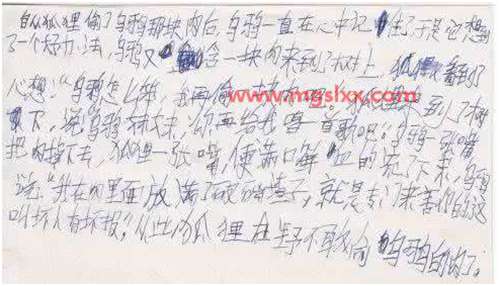 自从狐狸偷了乌鸦那块肉后,乌鸦一直在心中记住了于是它想到
了一个好办法,乌鸦又含一块肉来到了树上,狐狸看到了
心想:"乌鸦怎么,我再偷一块 来到了树
下,说乌鸦,你再给我唱一首歌吧?乌鸦一张嘴
把肉掉下去,狐狸一张嘴,便满口鲜血的流了下来,乌鸦
说:"我在肉里面放满了破碎渣子,就是专门来害你的这
叫坏人有坏报,"从此以狐狸在也不敢向乌鸦的肉了。
www.mgslxx.com